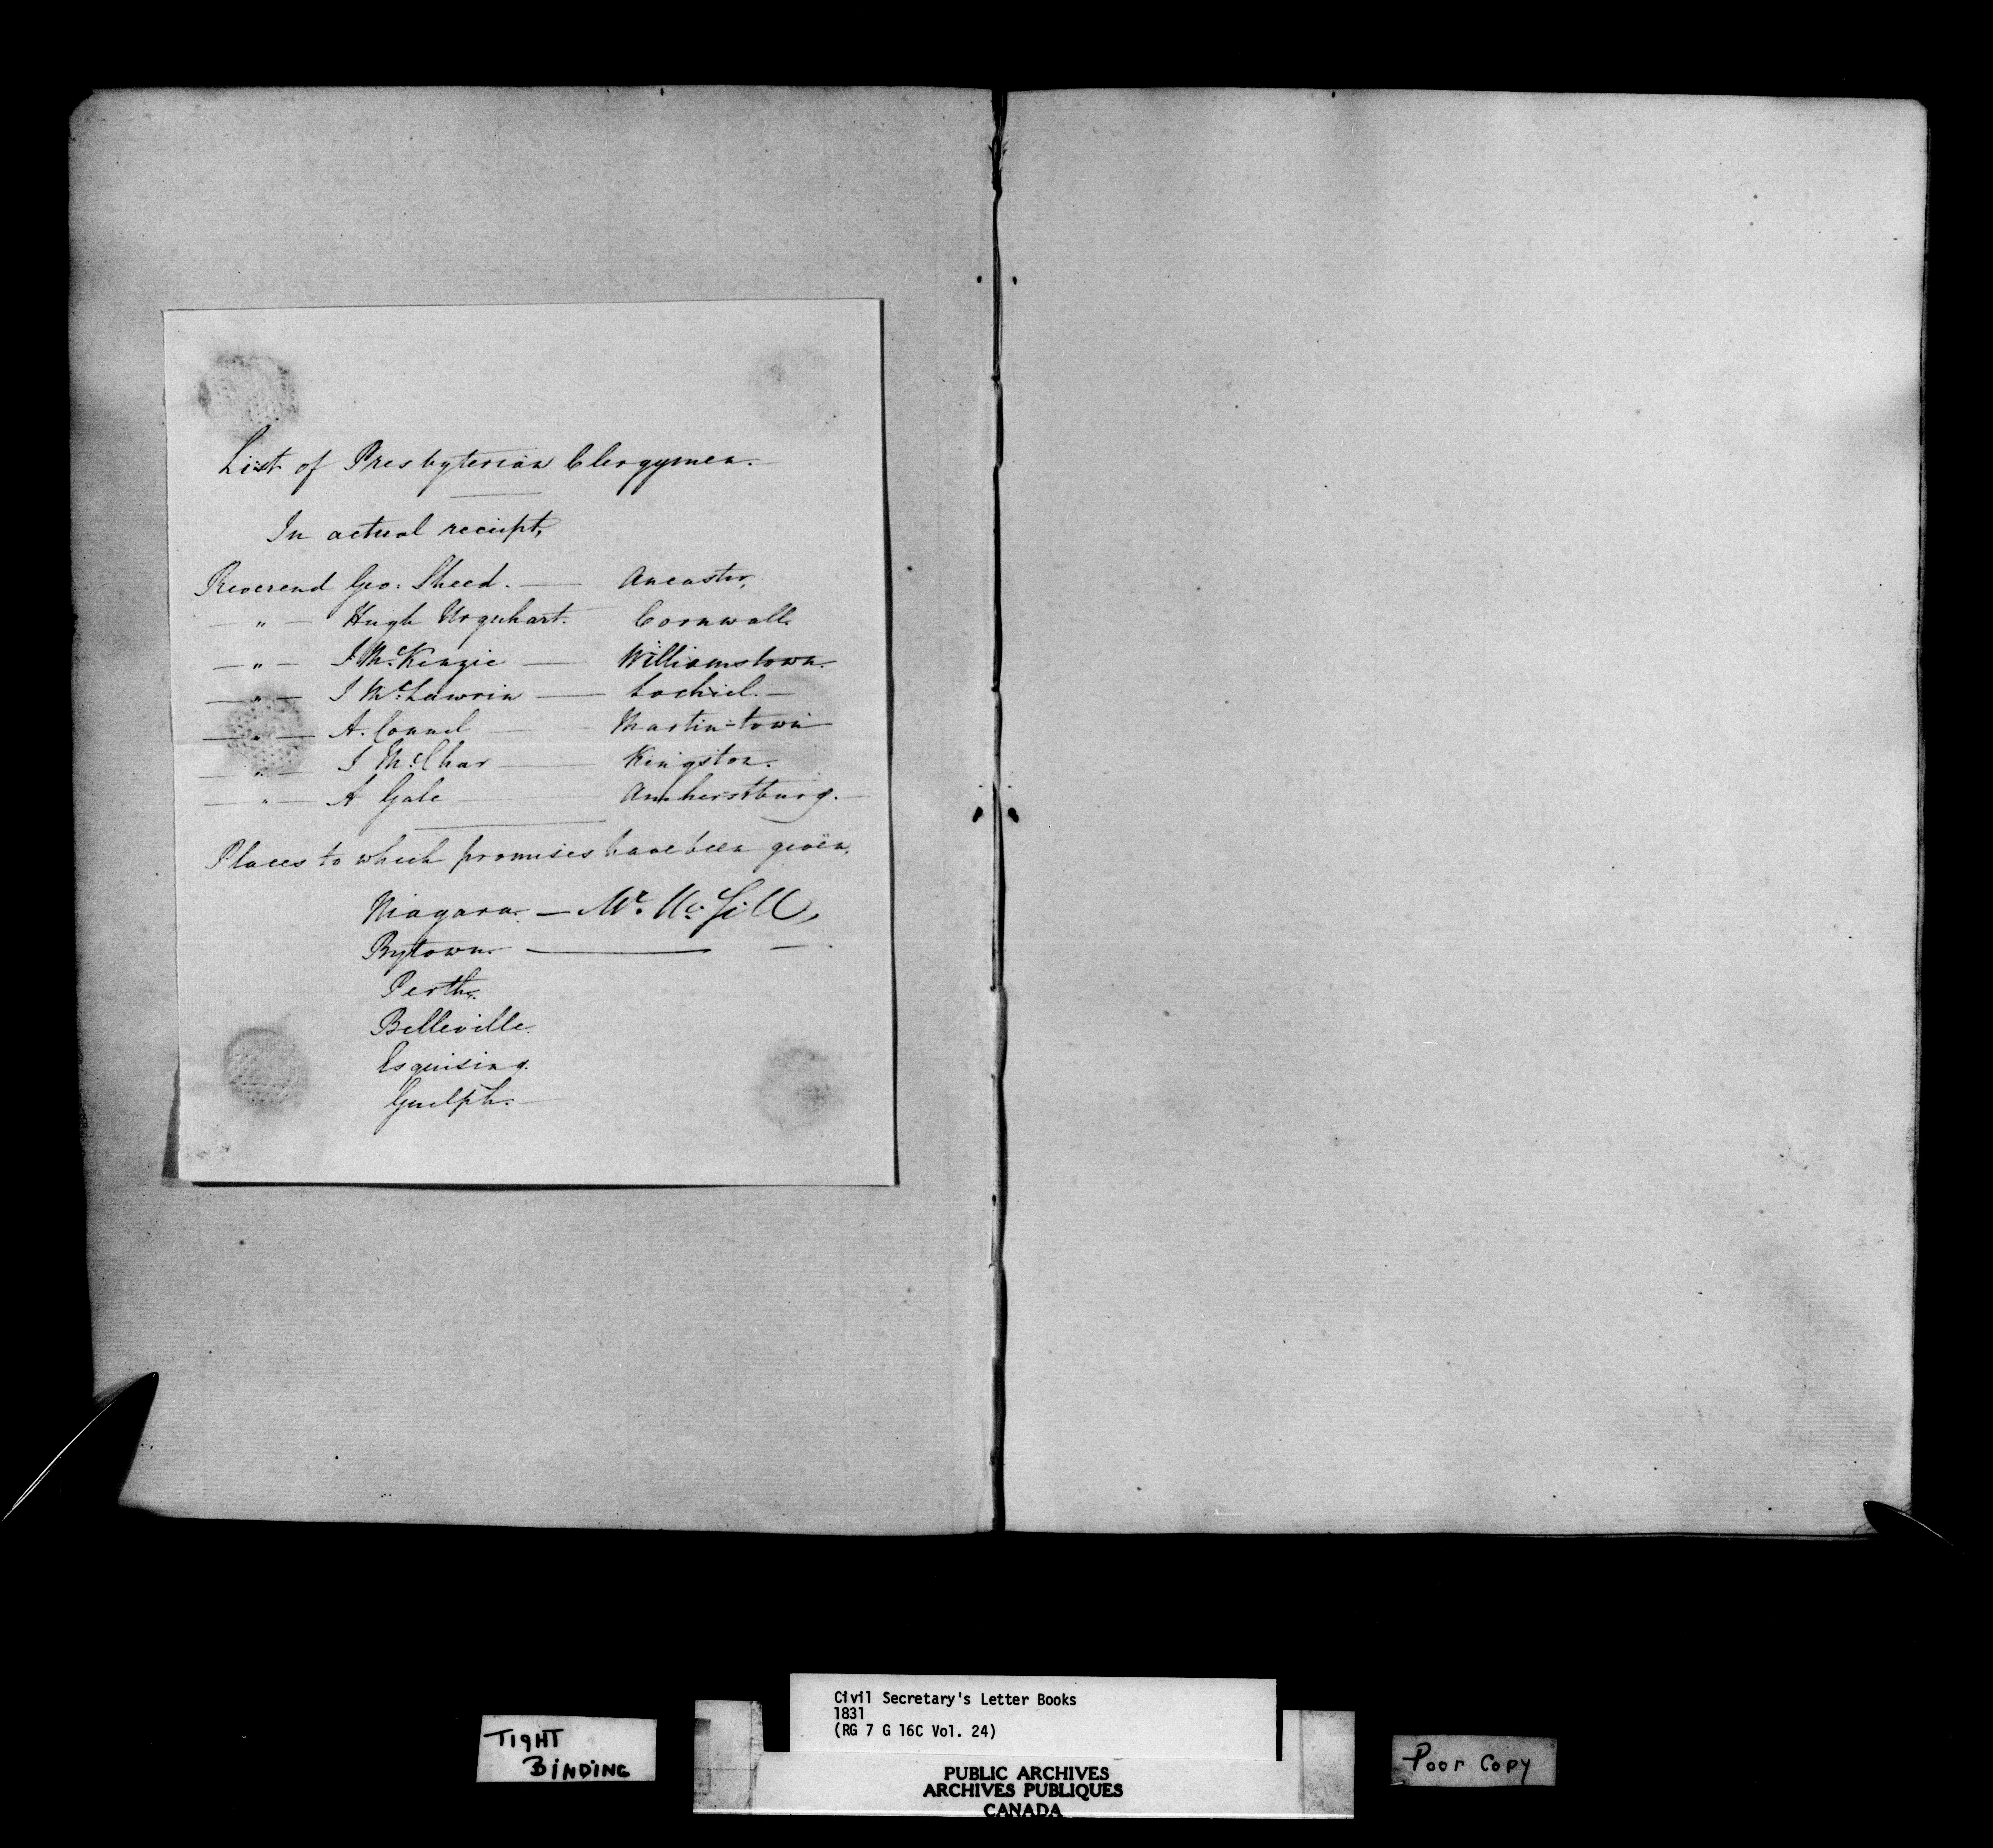 List of Presbyterian Clergymen.
In actual receipt,
Reverend Geo: Sheed. — Ancaster,
— " — Hugh Urquhart. Cornwall.
— " — J McKenzie — Williamstown.
— " — J McLaurin — Lochiel. —
— " — A. Connel — Martin-town
— " — J McChar — Kingston.
— " — A Gale — Amherstburg. —
Places to which promises have been given,
Niagara. — Mr. McGill,
Bytown. —
Perth.
Belleville.
Esquising.
Guelph. —
TIGHT
BINDING
Civil Secretary's Letter Books
1831
(RG 7 G 16C Vol. 24)
PUBLIC ARCHIVES
ARCHIVES PUBLIQUES
CANADA
Poor Copy